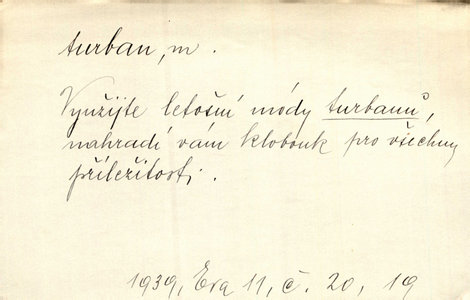 turban, m.
Využijte letošní módy turbanů,
nahradí vám klobouk pro všechny
příležitosti.
1939, Eva 11, č. 20, 19